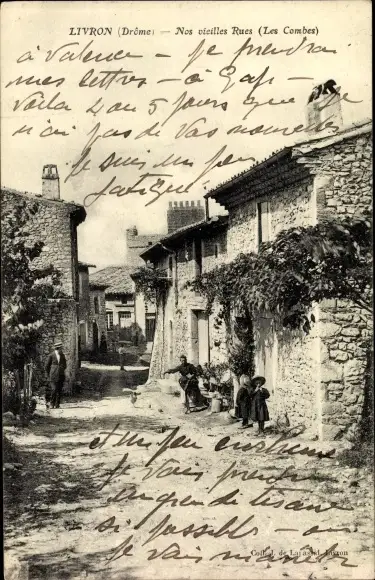 LIVRON (Drôme) — Nos vieilles Rues (Les Combes)
à Valence — je prendrai
mes lettres — à Gap —
Voilà 4 ou 5 jours que je
n'ai pas de vos nouvelles
je suis un peu
fatiguée
et un peu
je vais prendre
grande tisane
si possible — ou
je vais
Coll. J. de Livron